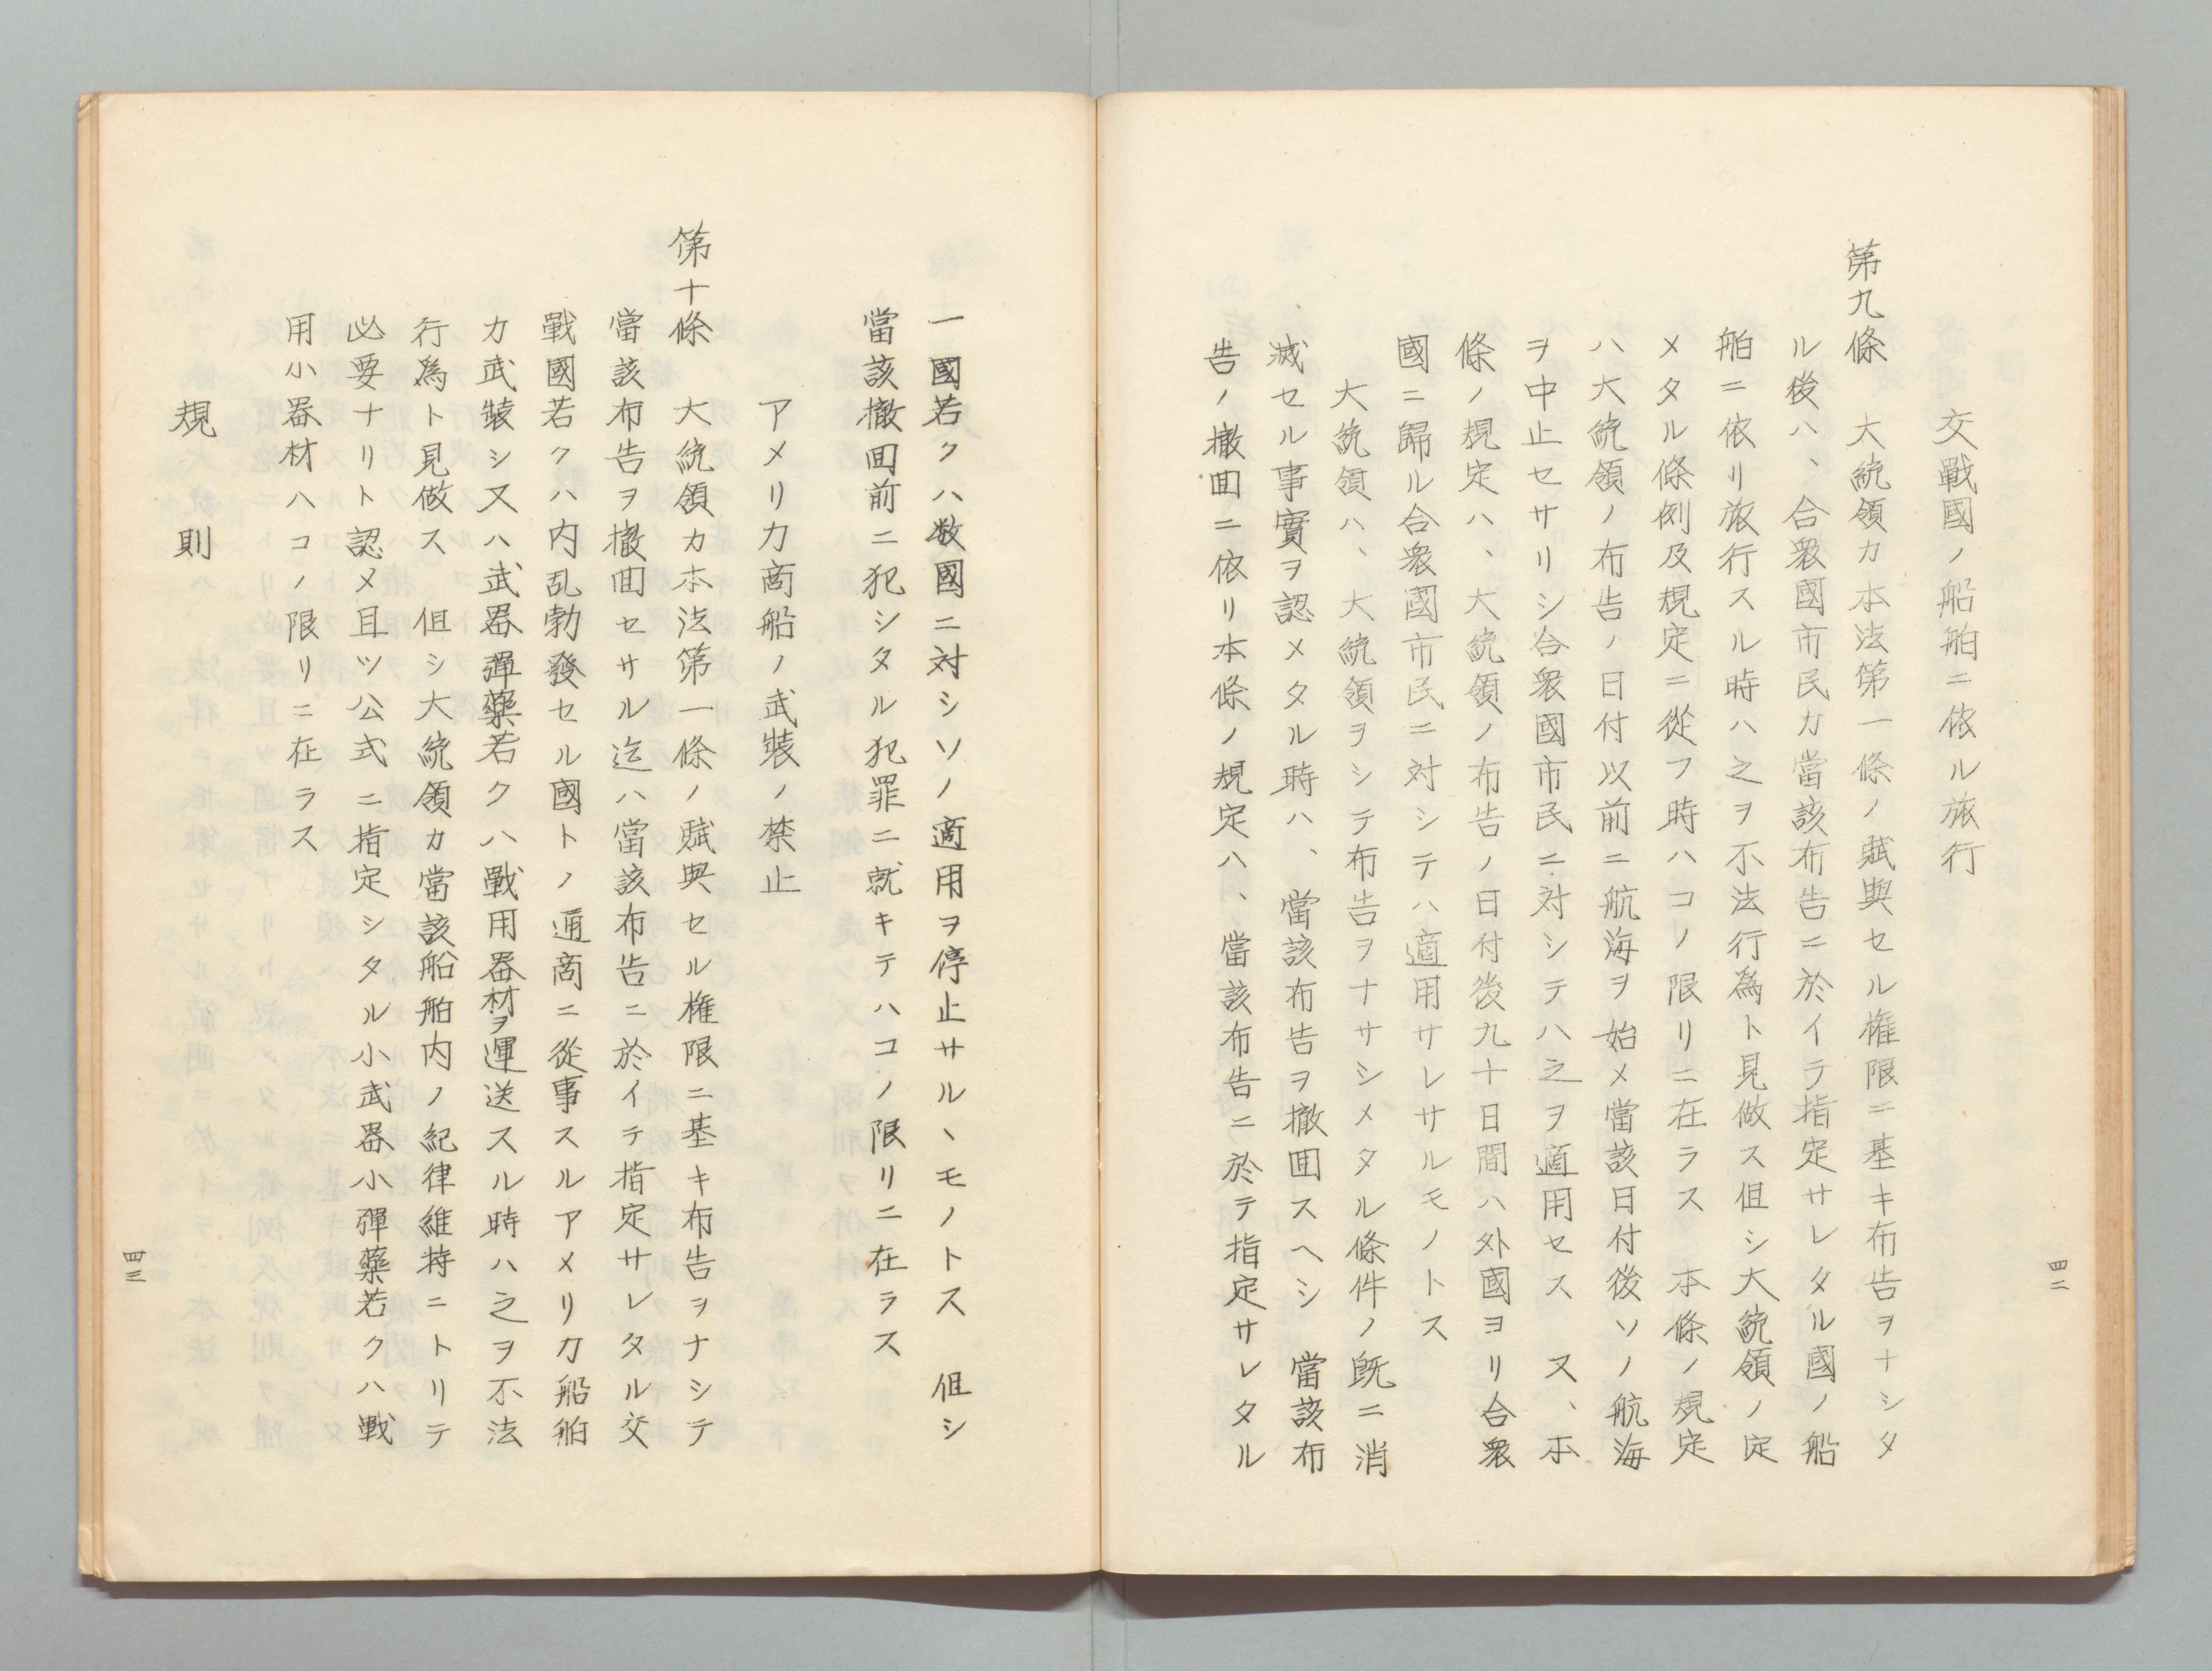 交戰國ノ船舶ニ依ル旅行
第九條　大統領カ本法第一條ノ賦與セル権限ニ基キ布告ヲナシタ
ル後ハ、合衆國市民カ當該布告ニ於イテ指定サレタル國ノ船
舶ニ依リ旅行スル時ハ之ヲ不法行為ト見做ス但シ大統領ノ定
メタル條例及規定ニ從フ時ハコノ限リニ在ラス　本條ノ規定
ハ大統領ノ布告ノ日付以前ニ航海ヲ始メ當該日付後ソノ航海
ヲ中止セサリシ合衆國市民ニ対シテハ之ヲ適用セス　又、本
條ノ規定ハ、大統領ノ布告ノ日付後九十日間ハ外國ヨリ合衆
國ニ歸ル合衆國市民ニ対シテハ適用サレサルモノトス
大統領ハ、大統領ヲシテ布告ヲナサシメタル條件ノ既ニ消
滅セル事實ヲ認メタル時ハ、當該布告ヲ撤囬スヘシ　當該布
告ノ撤囬ニ依リ本條ノ規定ハ、當該布告ニ於テ指定サレタル
四二
一國若クハ数國ニ対シソノ適用ヲ停止サルヽモノトス　但シ
當該撤囬前ニ犯シタル犯罪ニ就キテハコノ限リニ在ラス
アメリカ商船ノ武裝ノ禁止
第十條　大統領カ本法第一條ノ賦與セル権限ニ基キ布告ヲナシテ
當該布告ヲ撤囬セサル迄ハ當該布告ニ於イテ指定サレタル交
戰國若クハ内乱勃發セル國トノ通商ニ從事スルアメリカ船舶
カ武裝シ又ハ武器彈藥若クハ戰用器材ヲ運送スル時ハ之ヲ不法
行為ト見做ス　但シ大統領カ當該船舶内ノ紀律維持ニトリテ
必要ナリト認メ且ツ公式ニ指定シタル小武器小彈藥若クハ戰
用小器材ハコノ限リニ在ラス
規則
四三